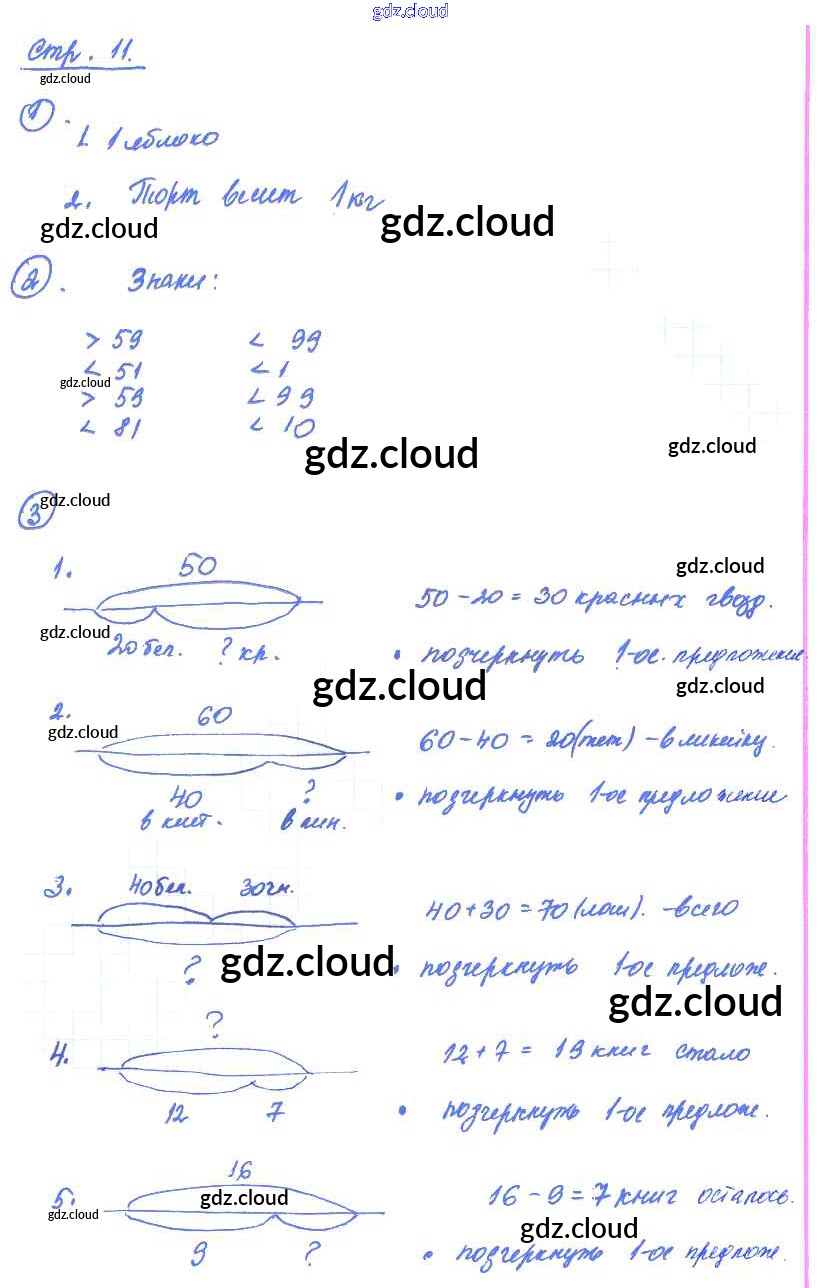 gdz.cloud
Стр. 11.
gdz.cloud
1.
1. 1 яблоко
2. Торт весит 1 кг
gdz.cloud gdz.cloud
2. Знаки:
> 59 < 99
< 51 < 1
gdz.cloud
> 59 < 99
< 81 < 10
gdz.cloud gdz.cloud
3 gdz.cloud
1. 50 gdz.cloud
50 - 20 = 30 красных гвозд.
gdz.cloud
20 бел. ? кр. • подчеркнуть 1-ое. предложение.
gdz.cloud gdz.cloud
2. 60
gdz.cloud 60 - 40 = 20 (тет) - в линейку.
40 ? • подчеркнуть 1-ое предложение
в клет. в лин.
3. 40 бел. 30 чн.
40 + 30 = 70 (лош). - всего
? gdz.cloud • подчеркнуть 1-ое предложе.
gdz.cloud
?
4. 12 + 7 = 19 книг стало
12 7 • подчеркнуть 1-ое предложе.
16
5. gdz.cloud 16 - 9 = 7 книг осталось.
gdz.cloud gdz.cloud
9 ? • подчеркнуть 1-ое предложе.